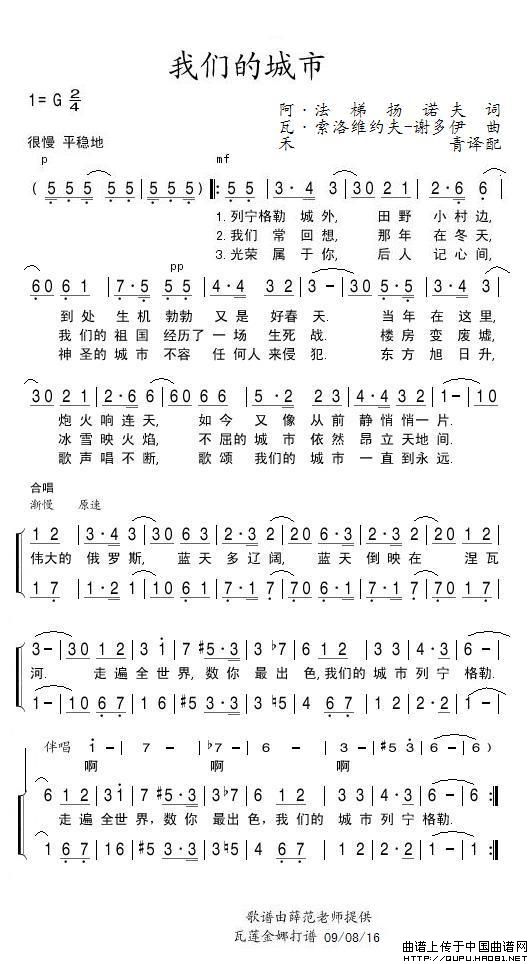 我们的城市
1= G 2/4
阿·法梯扬诺夫 词
瓦·索洛维约夫-谢多伊 曲
很慢 平稳地
禾青译配
p mf
( 5 5 5 5 5 5 5 5 5 ) ‖: 5 5 | 3· 4 3 | 3 0 2 1 | 2· 6 6 |
1. 列宁格勒 城外, 田野 小村边,
2. 我们 常 回想, 那年 在冬天,
3. 光荣 属 于你, 后人 记心间,
pp
6 0 6 1 | 7· 5 5 | 5 5 4· 4 | 3 2 | 3 - | 3 0 2 1 | 2· 6 6 |
到处 生机 勃勃 又是 好春 天. 当年 在这里,
我们的祖国 经历了一场 生死 战. 楼房 变 废墟,
神圣的城市 不容 任何人来侵 犯. 东方 旭日升,
3 0 2 1 | 2 1 7 6 | 6 0 6 6 | 5· 4 | 2 3 | 3· 2 4 3 | 1 - | 1 0
炮火响连天, 如今 又像 从前 静悄悄一片.
冰雪映火焰, 不屈的城市 依然 昂立天地间.
歌声唱不断, 歌颂 我们的城市 一直到永远.
合唱
渐慢 原速
1 2 | 3· 4 3 | 3 0 6 3 | 2· 3 2 | 2 0 6 2 | 1· 2 1 | 2 0 1 2
伟大的 俄罗斯, 蓝天 多辽阔, 蓝天 倒映在 涅瓦
1 7 | 1· 2 1 | 1 0 6 1 | 7· 1 7 | 7 0 6 7 | 6· 7 6 | 7 0 6 7
3 - | 3 0 1 2 | 3 1 | 7 #5·3 | 3 b7 | 6 1 2 | 3 3 2·2 | 3·4 3 | 6 - | 6
河. 走遍全世界, 数你 最出 色, 我们的 城市 列宁 格勒.
1 - | 1 0 6 7 | 1 6 | #5 3·3 | 3 ♮5 | 4 6 7 | 1 1 7·7 | 1·2 1 | 6 - | 6
伴唱 1 - | 7 - | b7 - | 6 - | 3 - | #5 3 | 6 - )
啊 啊 啊
6 1 2 | 3 1 | 7 #5·3 | 3 b7 | 6 1 2 | 3 3 2·2 | 4·3 | 6 - | 6 - :‖
走遍 全世界, 数你 最出色, 我们的 城市列宁 格勒.
1 6 7 | 1 6 | #5 3·3 | 3 ♮5 | 4 6 7 | 1 1 7·7 | 2·1 | 6 - | 6 - :‖
歌谱由薛范老师提供
瓦莲金娜打谱 09/08/16
曲谱上传于中国曲谱网
HTTP://QUPU.HAO81.NET